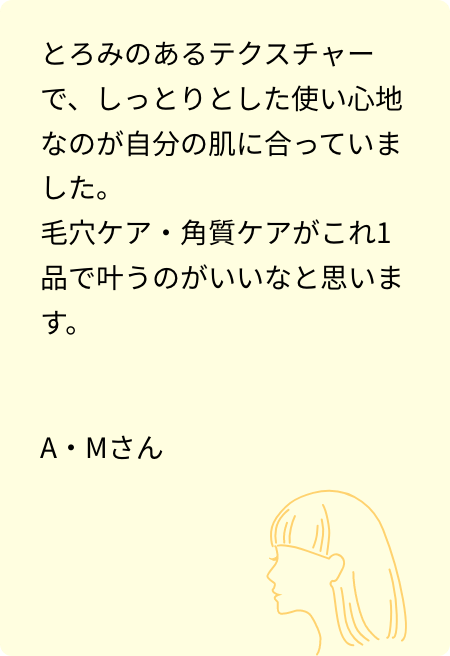 とろみのあるテクスチャー
で、しっとりとした使い心地
なのが自分の肌に合っていま
した。
毛穴ケア・角質ケアがこれ1
品で叶うのがいいなと思いま
す。
A・Mさん